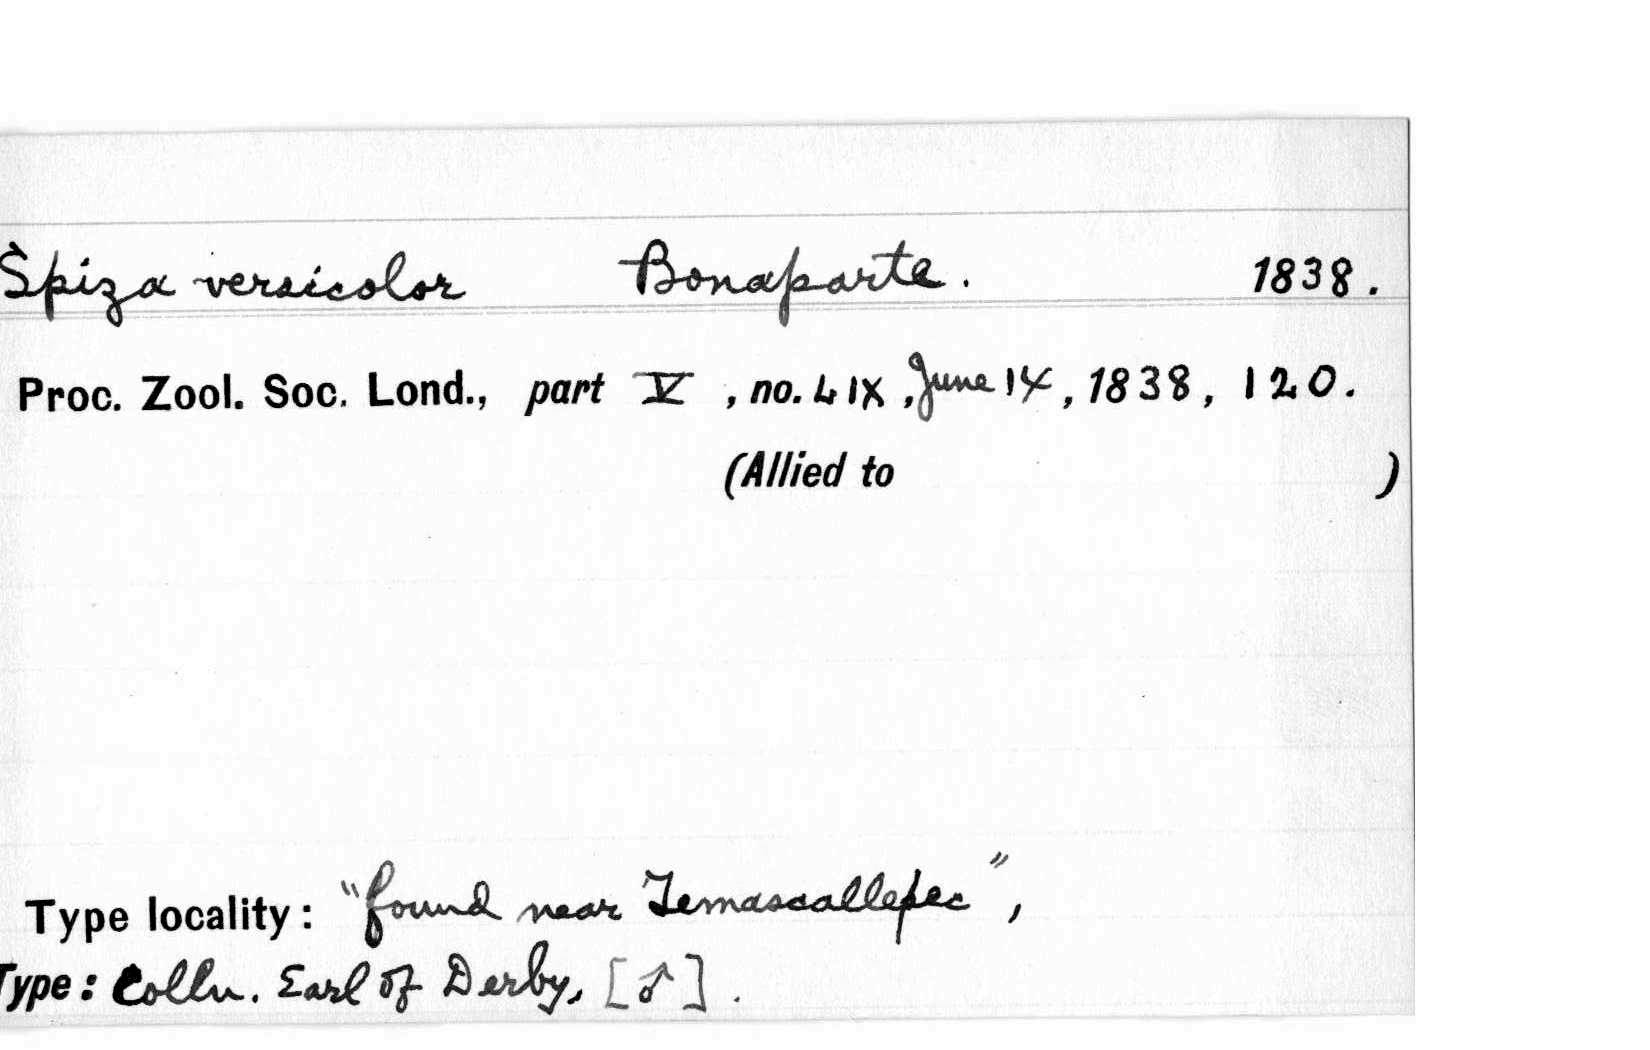 Spiza versicolor Bonaparte. 1838.
Proc. Zool. Soc. Lond., part V, no. LIX, June 14, 1838, 120.
(Allied to )
Type locality: "found near Temascallepec",
Type: Colln. Earl of Derby, [♂].